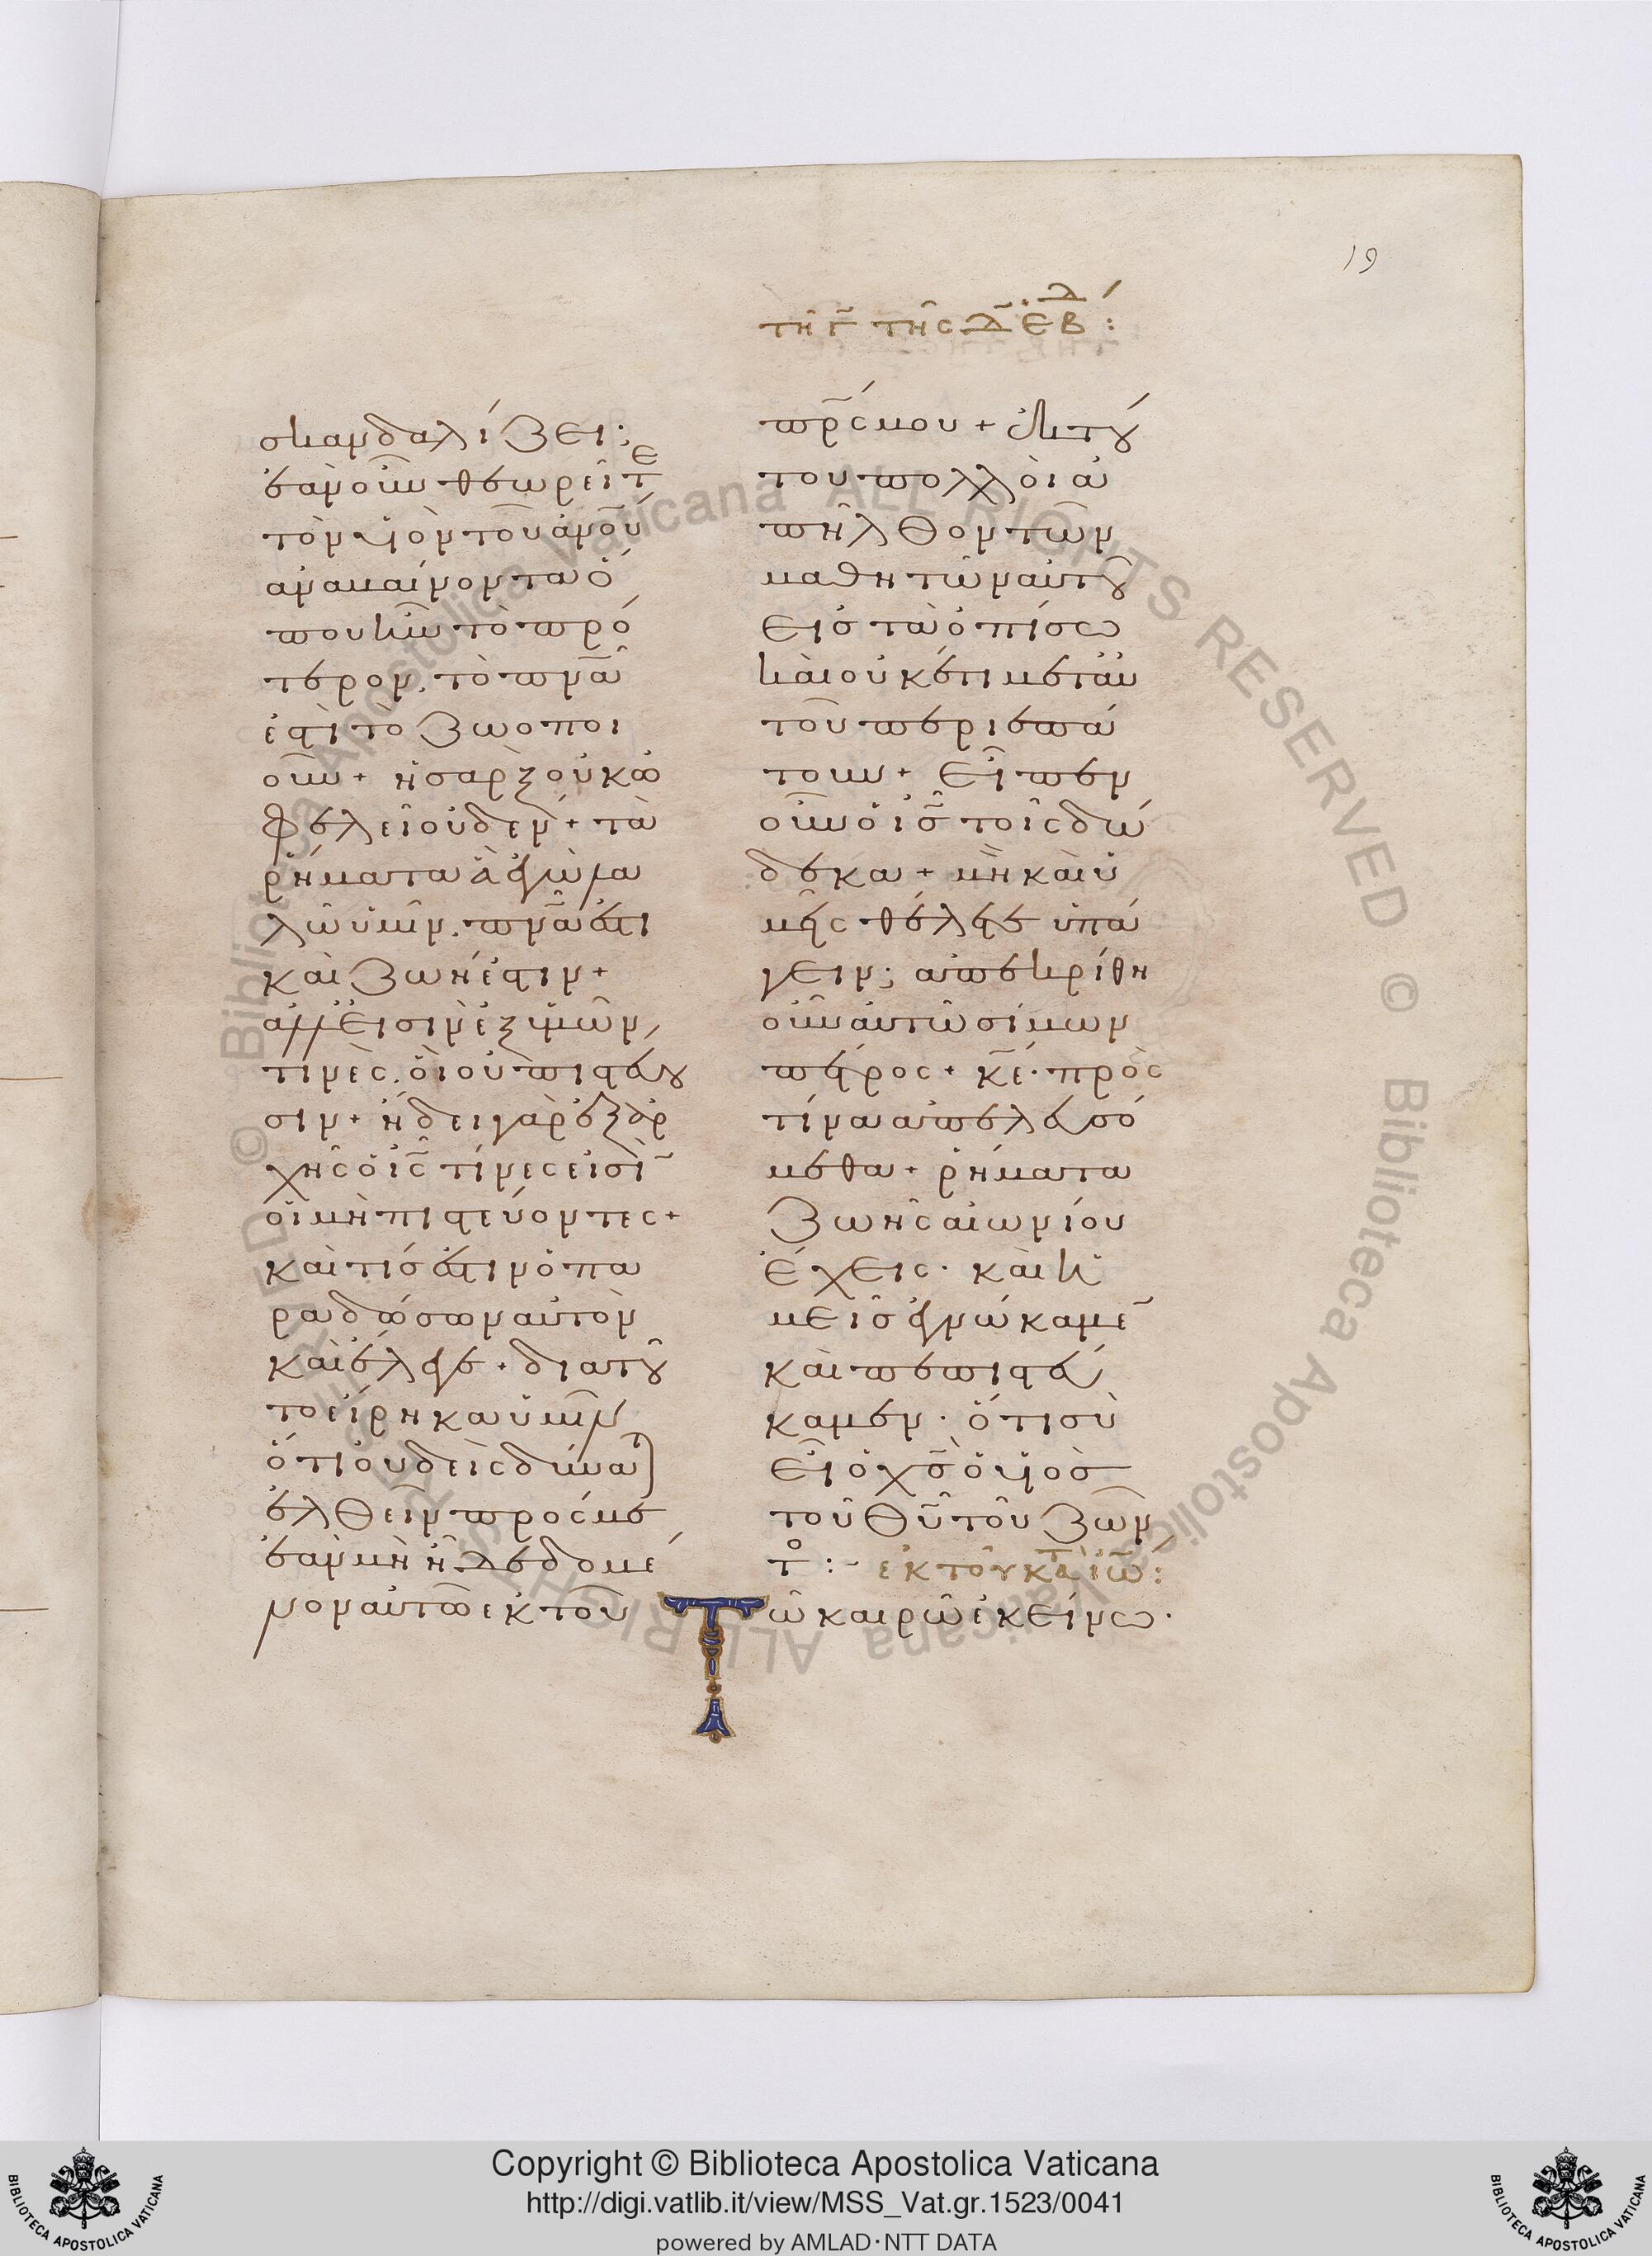 19
τῆ γ̅ τῆς δ̅ ἑβδ :
σκανδαλίζει·
ἐὰν οῦν θεωρεῖτε
τὸν υἱὸν τοῦ ἀνο̅υ
ἀναβαίνοντα ὅ
που ἦν τὸ πρό
τερον. τὸ πνα̅
ἐστὶ τὸ ζωοποι
οῦν + ἡ σὰρξ οὐκ ὠ
φελεῖ οὐδέν + τὰ
ῥήματα ἃ ἐγὼ λα
λῶ ὑμῖν. πνα̅ ἐστι
καὶ ζωή ἐστιν +
ἀλλ' εἰσὶν ἐξ ὑμῶν
τινὲς. οἳ οὐ πιστεύου
σιν + ἤδει γὰρ ἐξ ἀρ
χῆς ὁ ις̅ τίνες εἰσῒ
οἱ μὴ πιστεύοντες +
καὶ τίς ἐστιν ὁ πα
ραδώσων αὐτὸν
καὶ ἔλεγε + διατοῦ
το εἴρηκα ὑμῖν
ὅτι οὐδεὶς δύναται
ἐλθεῖν προς με
ἐὰν μὴ ῆ δεδομέ
νον αὐτῶ ἐκ τοῦ
πρ̅ς μου + ἐκ τού
του πολλοὶ ἀ
πῆλθον τῶν
μαθητῶν αὐτοῦ
εἰς τὰ ὀπίσω
καὶ οὐκέτι μετ' αὐ
τοῦ περιεπά
τουν + εἶπεν
οῦν ὁ ις̅ τοῖς δώ
δεκα + μὴ καὶ ὑ
μεῖς θέλετε ὑπά
γειν; ἀπεκρίθη
οῦν αὐτῶ σίμων
πέτρος + κε̅· πρὸς
τίνα ἀπελευσό
μεθα + ῥήματα
ζωῆς αἰωνίου
ἔχεις· καὶ ἡ
μεῖς ἐγνώκαμε̅
καὶ πεπιστεύ
καμεν· ὅτι σὺ
εἶ ὁ χς̅ ὁ υἱὸς
τοῦ θυ̅ τοῦ ζῶν
το :- ἐκ τοῦ κατὰ ϊω̅:
Τῶ καιρῶ ἐκείνω·
Copyright © Biblioteca Apostolica Vaticana
http://digi.vatlib.it/view/MSS_Vat.gr.1523/0041
powered by AMLAD·NTT DATA
BIBLIOTECA APOSTOLICA VATICANA
BIBLIOTECA APOSTOLICA VATICANA
© Biblioteca Apostolica Vaticana ALL RIGHTS RESERVED © Biblioteca Apostolica Vaticana ALL RIGHTS RESERVED